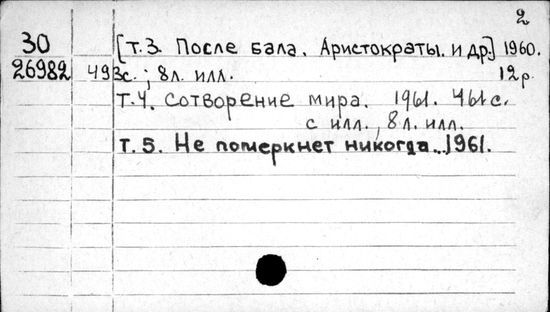 2
30 [т.3. После бала. Аристократы. и др.] 1960.
26982 493с.; 8л. илл. 12р
т.4. Сотворение мира. 1961. 461с.
с илл., 8л. илл.
т.5. Не померкнет никогда. 1961.